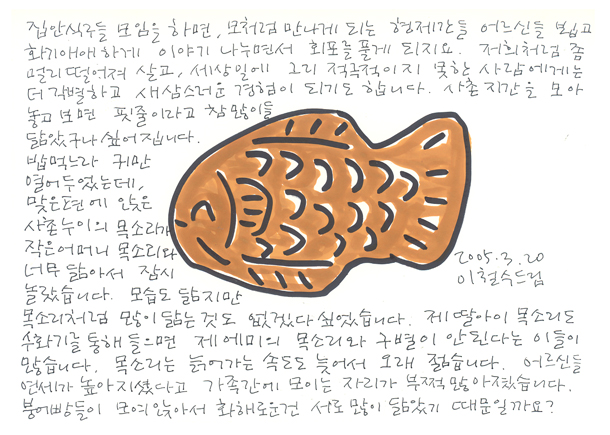 집안식구들 모임을 하면, 모처럼 만나게 되는 형제간들 어르신들 뵙고
화기애애하게 이야기 나누면서 회포를 풀게 되지요. 저희처럼 좀
멀리 떨어져 살고, 세상일에 그리 적극적이지 못한 사람에게는
더 각별하고 새삼스러운 경험이 되기도 합니다. 사촌지간을 모아
놓고 보면 핏줄이라고 참 많이들
닮았구나 싶어집니다.
밥먹느라 귀만
열어두었는데,
맞은편에 앉은
사촌누이의 목소리가
작은어머니 목소리와
너무 닮아서 잠시
놀랐습니다. 모습도 닮지만
목소리처럼 많이 닮는 것도 없겠다 싶었습니다. 제 딸아이 목소리도
수화기를 통해 들으면 제 에미의 목소리와 구별이 안된다는 이들이
많습니다. 목소리는 늙어가는 속도도 늦어서 오래 젊습니다. 어르신들
연세가 높아지셨다고 가족간에 모이는 자리가 부쩍 많아졌습니다.
붕어빵들이 모여 앉아서 화해로운건 서로 많이 닮았기 때문일까요?
2005.3.20
이철수드림